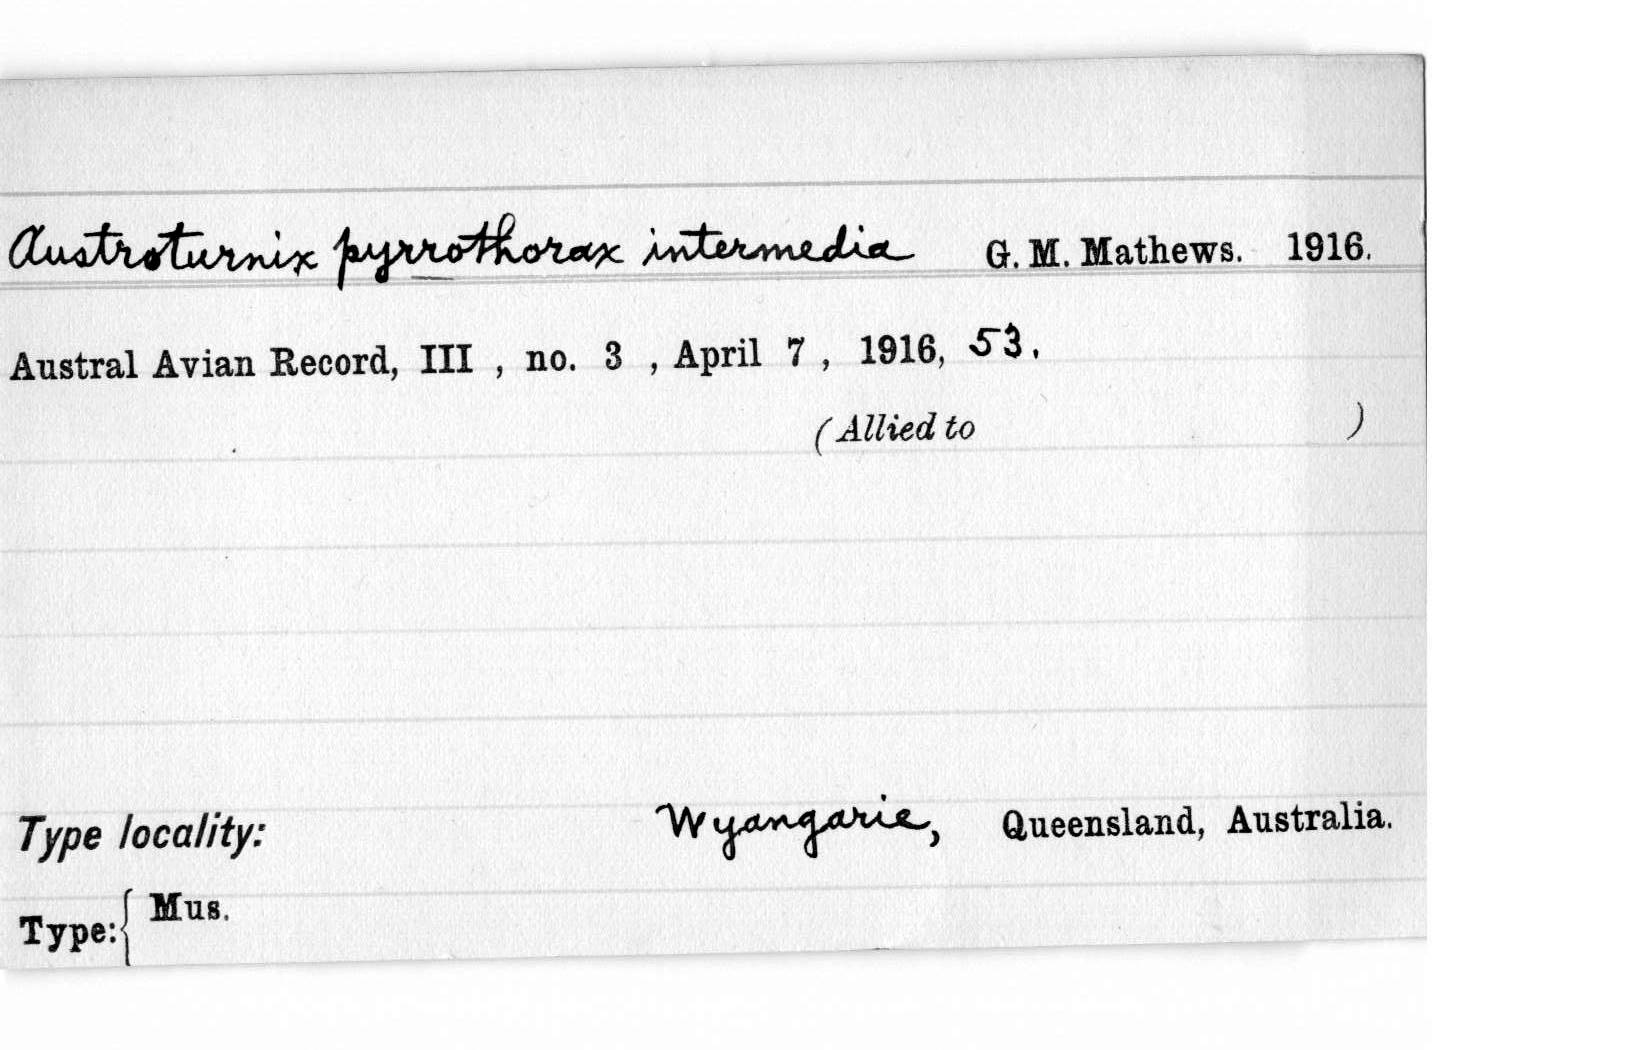 Austroturnix pyrrothorax intermedia G. M. Mathews. 1916.
Austral Avian Record, III , no. 3 , April 7 , 1916, 53.
(Allied to )
Type locality: Wyangarie, Queensland, Australia.
Type: { Mus.